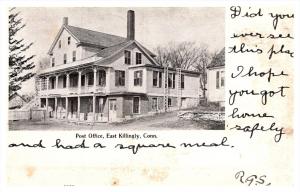 Did you
ever see
this pla
I hope
you got
home
safely
Post Office, East Killingly, Conn.
and had a square meal.
R.G.S.